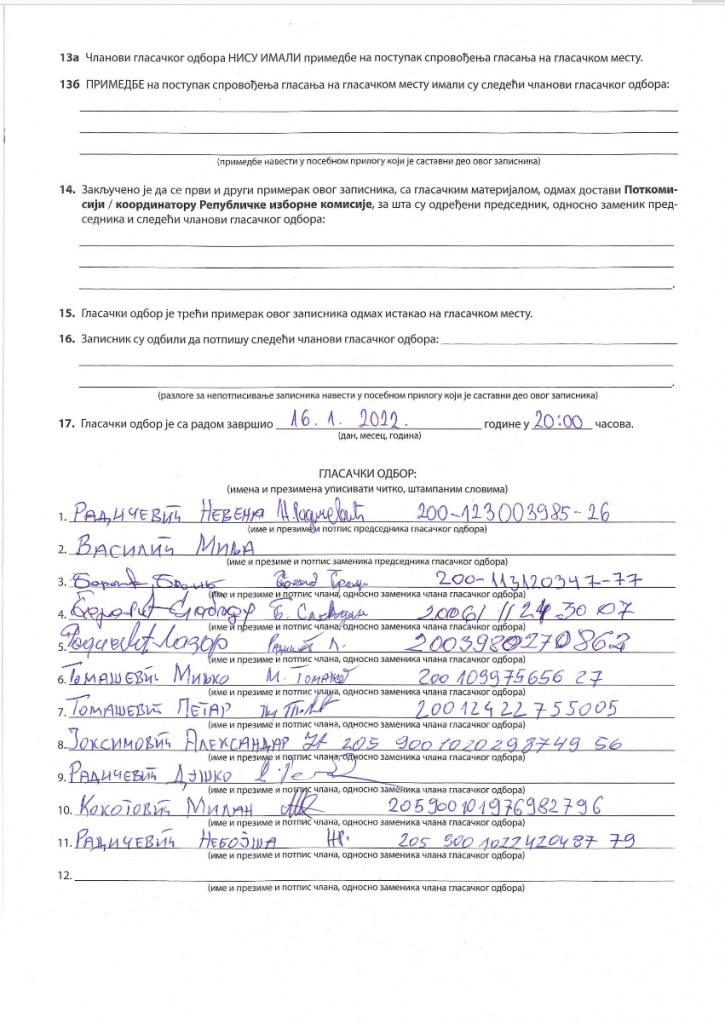 13а Чланови гласачког одбора НИСУ ИМАЛИ примедбе на поступак спровођења гласања на гласачком месту.
13б ПРИМЕДБЕ на поступак спровођења гласања на гласачком месту имали су следећи чланови гласачког одбора:
(примедбе навести у посебном прилогу који је саставни део овог записника)
14. Закључено је да се први и други примерак овог записника, са гласачким материјалом, одмах достави Поткоми-
сији / координатору Републичке изборне комисије, за шта су одређени председник, односно заменик пред-
седника и следећи чланови гласачког одбора:
15. Гласачки одбор је трећи примерак овог записника одмах истакао на гласачком месту.
16. Записник су одбили да потпишу следећи чланови гласачког одбора:
(разлоге за непотписивање записника навести у посебном прилогу који је саставни део овог записника)
17. Гласачки одбор је са радом завршио 16. 1. 2022. године у 20:00 часова.
(дан, месец, година)
ГЛАСАЧКИ ОДБОР:
(имена и презимена уписивати читко, штампаним словима)
1. РАДИЧЕВИЋ НЕВЕНА 200-123003985-26
(име и презиме и потпис председника гласачког одбора)
2. ВАСИЛИЋ МИЉА
(име и презиме и потпис заменика председника гласачког одбора)
3. 200-113120347-77
(име и презиме и потпис члана, односно заменика члана гласачког одбора)
4.
(име и презиме и потпис члана, односно заменика члана гласачког одбора)
5. Лазар
(име и презиме и потпис члана, односно заменика члана гласачког одбора)
6. ТОМАШЕВИЋ МИШКО М. ТОМАШЕВ 200 109975656 27
(име и презиме и потпис члана, односно заменика члана гласачког одбора)
7. ТОМАШЕВИЋ ПЕТАР 20012422755005
(име и презиме и потпис члана, односно заменика члана гласачког одбора)
8. ЈОКСИМОВИЋ АЛЕКСАНДАР 205 9001020298749 56
(име и презиме и потпис члана, односно заменика члана гласачког одбора)
9. РАДИЧЕВИЋ
(име и презиме и потпис члана, односно заменика члана гласачког одбора)
10. КОКОТОВИЋ МИЛАН 205900101976982796
(име и презиме и потпис члана, односно заменика члана гласачког одбора)
11. РАДИЧЕВИЋ НЕБОЈША НР. 205 9001022420487 79
(име и презиме и потпис члана, односно заменика члана гласачког одбора)
12.
(име и презиме и потпис члана, односно заменика члана гласачког одбора)